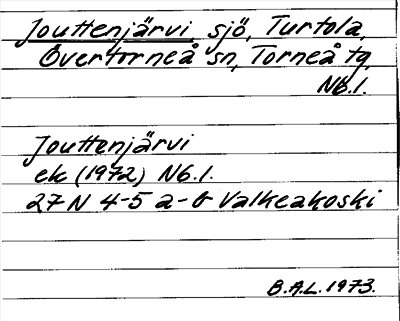 Jouttenjärvi sjö, Turtola,
Övertorneå sn, Torneå tg,
Nb.l.
Jouttenjärvi
ek (1972) Nb.l.
27 N 4-5 a-b Valkeakoski
B.A.L. 1973.